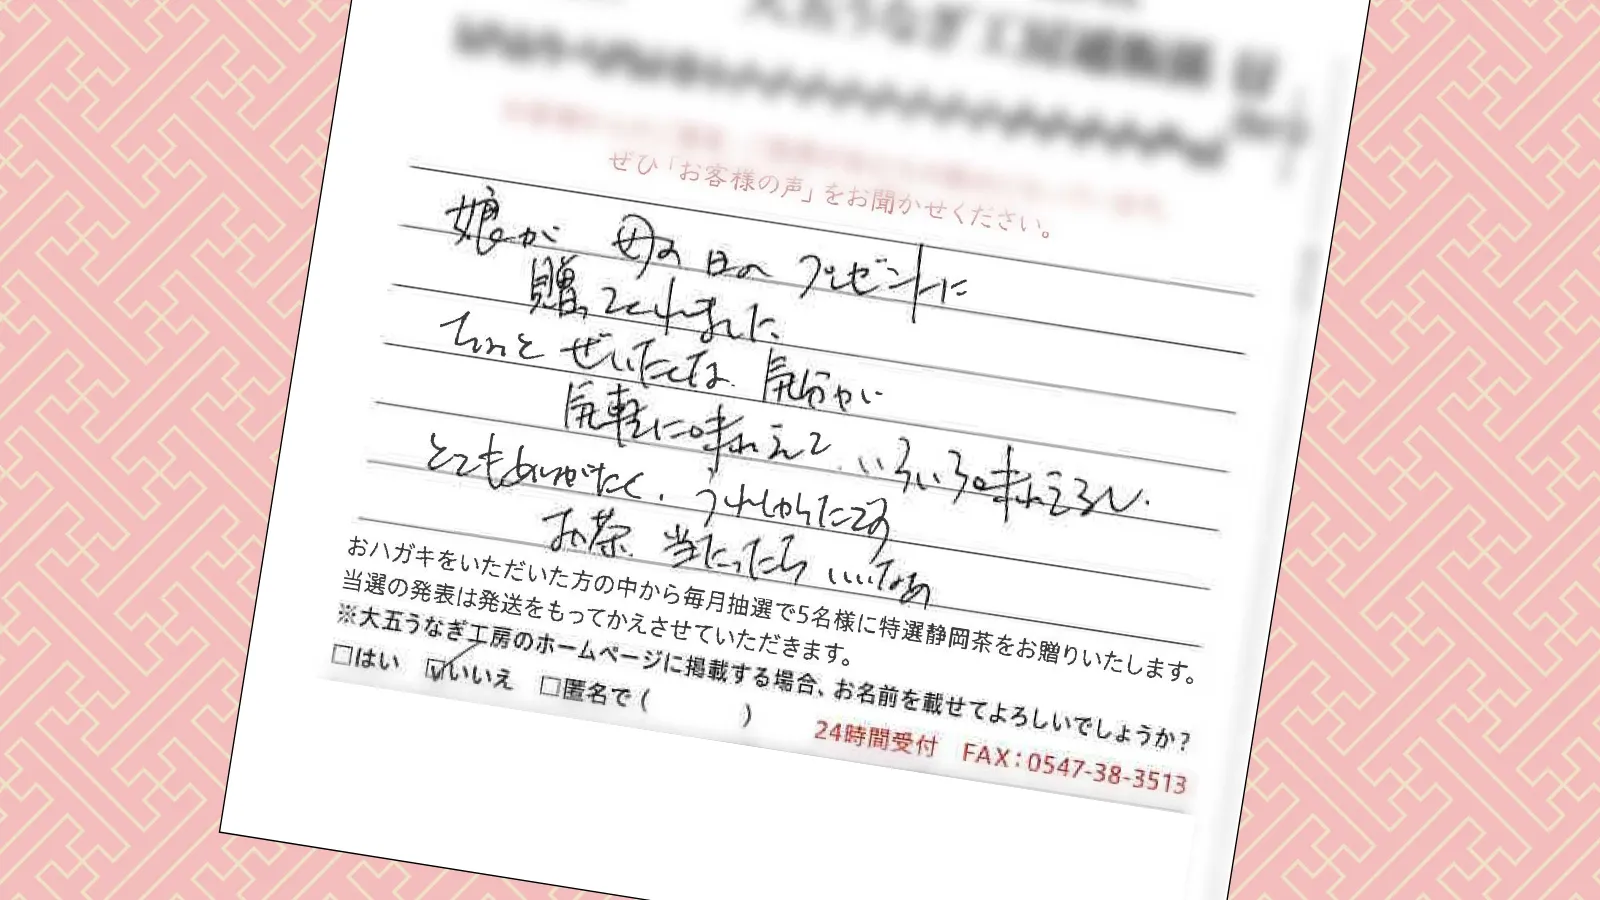 大五うなぎ工房通販係 行
ぜひ「お客様の声」をお聞かせください。
娘が 母の日の プレゼントに
贈ってくれました
ちょっと ぜいたくな 気分かい
気軽に味わえて いろいろ味わえるし、
とてもありがたく、うれしかったです
お茶 当たったら いいなあ
おハガキをいただいた方の中から毎月抽選で5名様に特選静岡茶をお贈りいたします。
当選の発表は発送をもってかえさせていただきます。
※大五うなぎ工房のホームページに掲載する場合、お名前を載せてよろしいでしょうか?
□はい ☑いいえ □匿名で( )
24時間受付 FAX:0547-38-3513